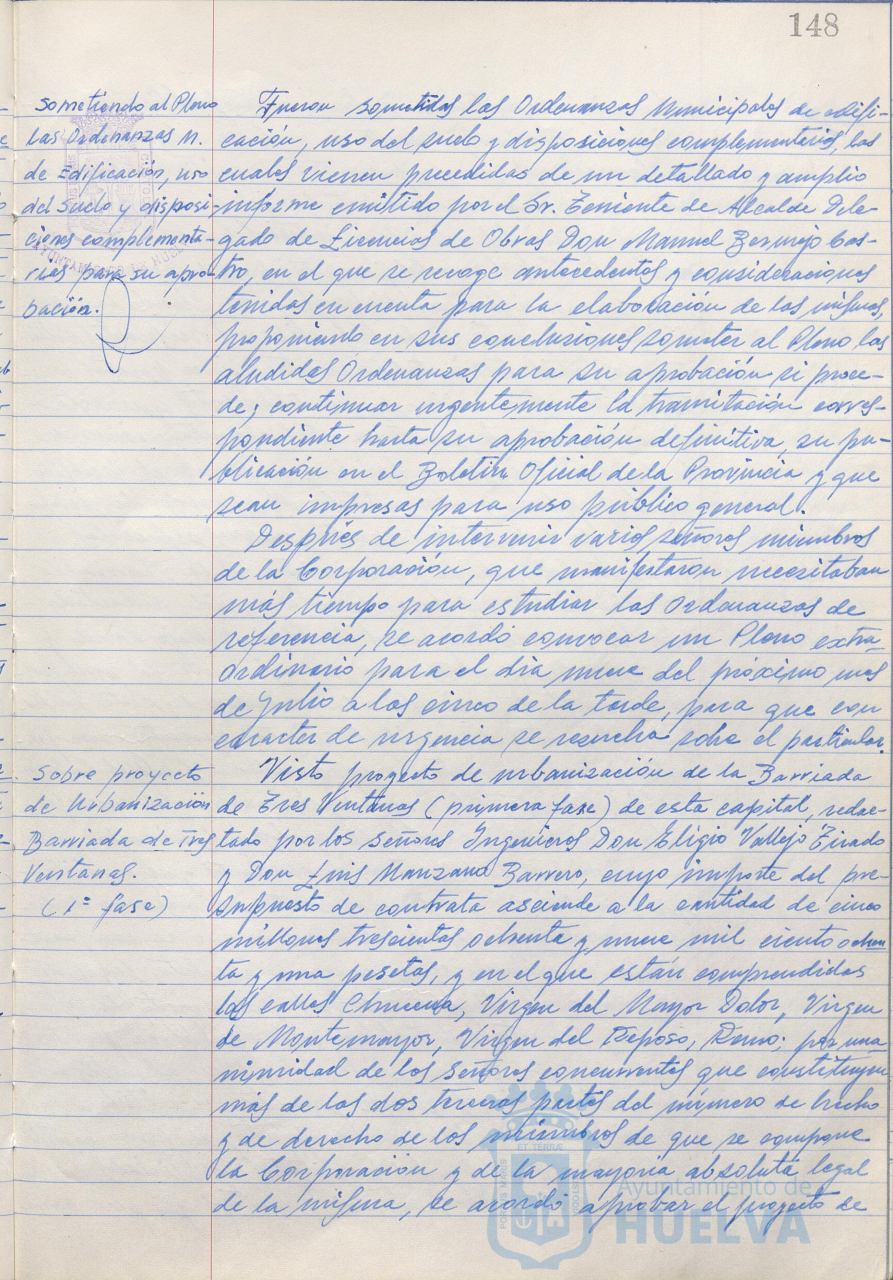 148
Sometiendo al Pleno
las Ordenanzas M.
de Edificación, uso
del Suelo y disposi-
ciones complementa-
rias para su apro-
bación.
Fueron sometidas las Ordenanzas Municipales de edifi-
cación, uso del suelo y disposiciones complementarias, las
cuales vienen precedidas de un detallado y amplio
informe emitido por el Sr. Teniente de Alcalde Dele-
gado de Licencias de Obras Don Manuel Bermejo Cas-
tro, en el que se recoge antecedentes y consideraciones
tenidas en cuenta para la elaboración de las mismas,
proponiendo en sus conclusiones someter al Pleno las
aludidas Ordenanzas para su aprobación si proce-
de; continuar urgentemente la tramitación corres-
pondiente hasta su aprobación definitiva, su pu-
blicación en el Boletín Oficial de la Provincia y que
sean impresas para uso público general.
Después de intervenir varios señores miembros
de la Corporación, que manifestaron necesitaban
más tiempo para estudiar las Ordenanzas de
referencia, se acordó convocar un Pleno extra-
ordinario para el día nueve del próximo mes
de Julio a las cinco de la tarde, para que con
caracter de urgencia se resuelva sobre el particular.
Sobre proyecto
de Urbanización
Barriada de Tres
Ventanas.
(1ª fase)
Visto proyecto de urbanización de la Barriada
de Tres Ventanas (primera fase) de esta capital, redac-
tado por los señores Ingenieros Don Eligio Vallejo Tirado
y Don Luis Manzano Barrero, cuyo importe del pre-
supuesto de contrata asciende a la cantidad de cinco
millones trescientas ochenta y nueve mil ciento ochen
ta y una pesetas, y en el que están comprendidas
las calles Chucena, Virgen del Mayor Dolor, Virgen
de Montemayor, Virgen del Reposo, por una-
nimidad de los señores concurrentes que constituyen
más de las dos terceras partes del número de hecho
y de derecho de los miembros de que se compone
la Corporación y de la mayoria absoluta legal
de la misma, se acordó aprobar el proyecto de
Ayuntamiento de
HUELVA